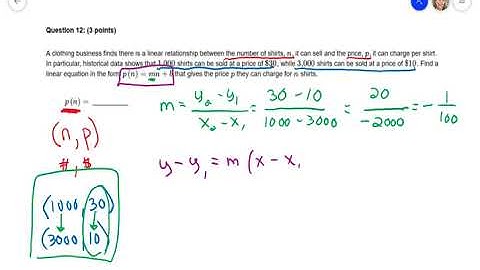 Question 12: (3 points)
A clothing business finds there is a linear relationship between the number of shirts, n, it can sell and the price, p, it can charge per shirt.
In particular, historical data shows that 1,000 shirts can be sold at a price of $30, while 3,000 shirts can be sold at a price of $10. Find a
linear equation in the form p(n) = mn + b that gives the price p they can charge for n shirts.
p(n) =
m = y₂ - y₁ / x₂ - x₁ = 30 - 10 / 1000 - 3000 = 20 / -2000 = - 1 / 100
(n, p)
#, $
y - y₁ = m (x - x,
(1000, 30)
(3000, 10)